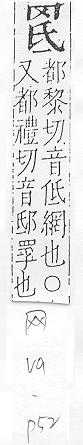 都黎切音低網也○
又都禮切音邸也
网
va
-
p52